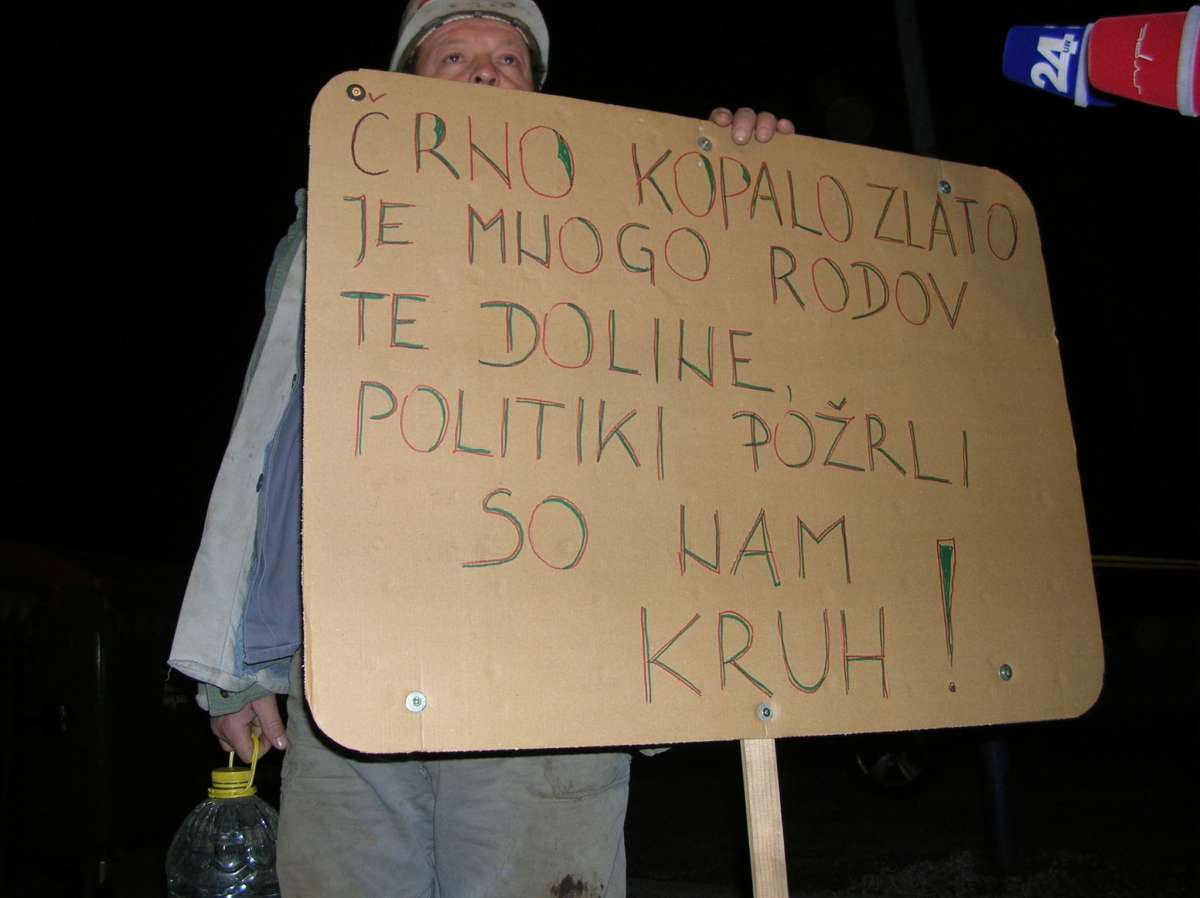 ČRNO KOPALO ZLATO
JE MNOGO RODOV
TE DOLINE,
POLITIKI POŽRLI
SO NAM
KRUH!
24
UR